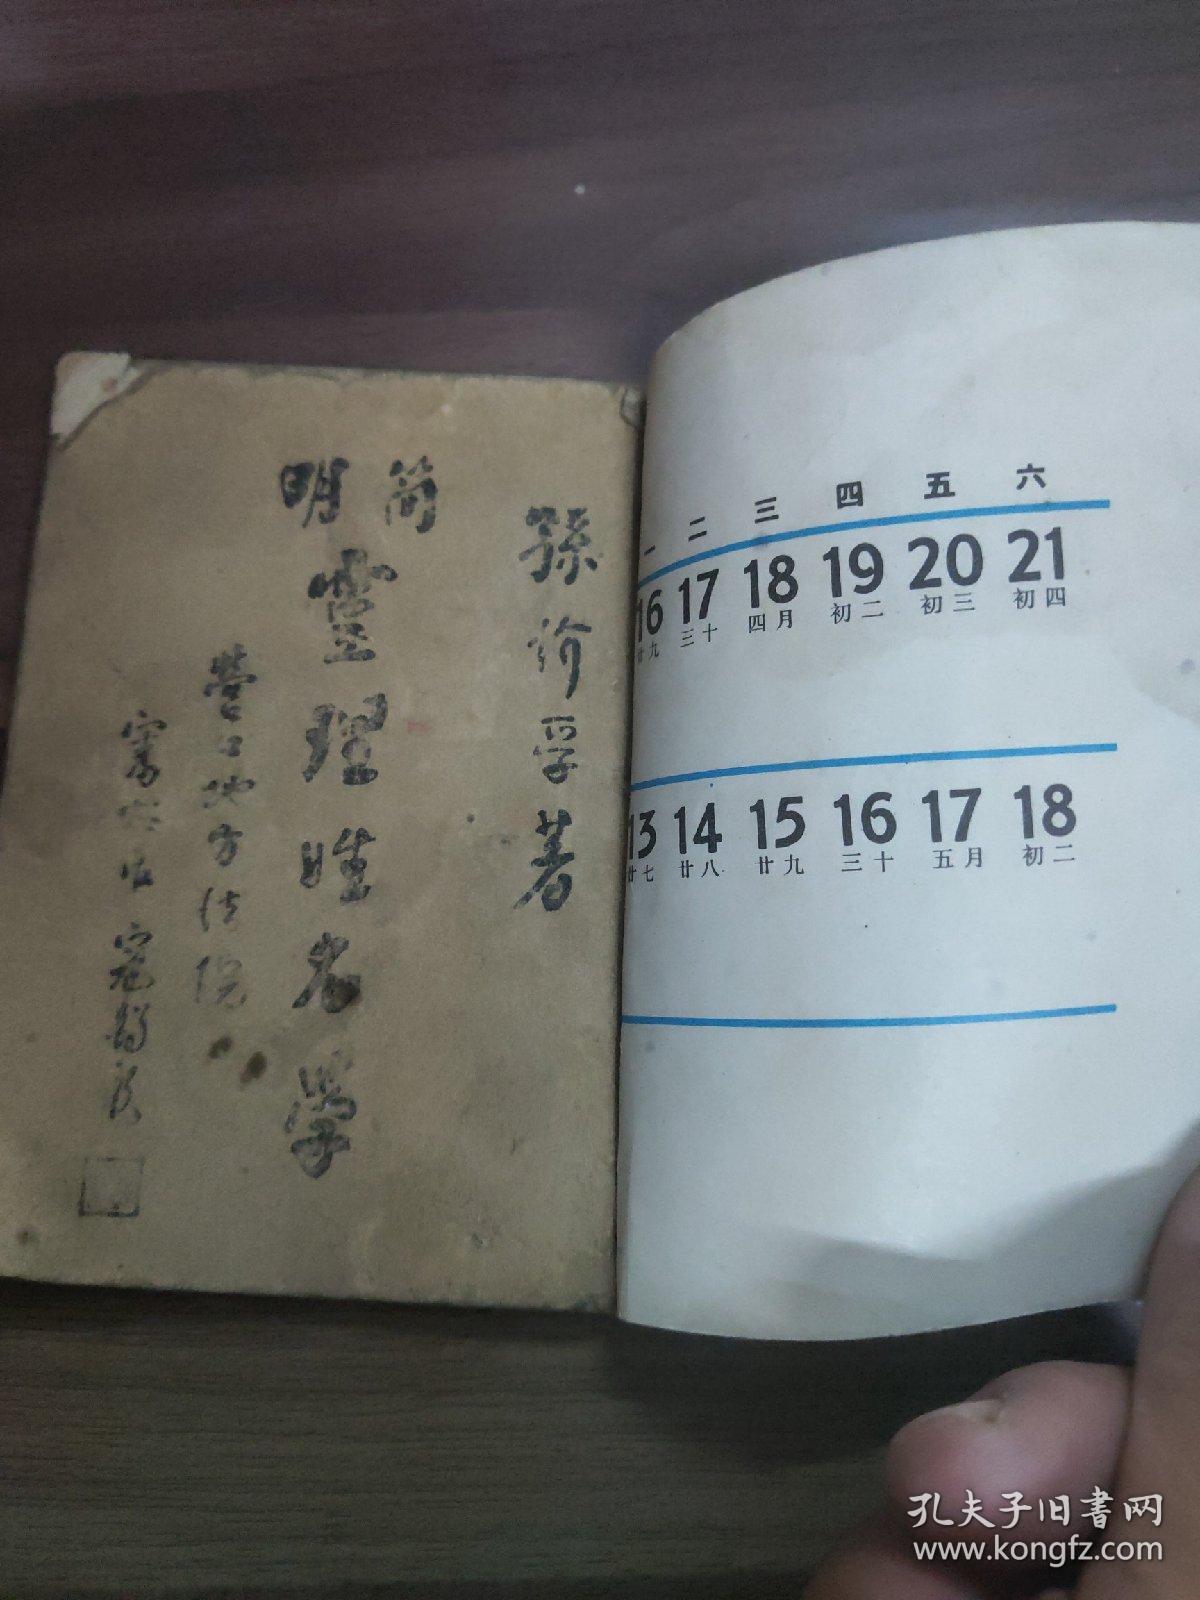 孫介孚著
簡
明
靈理姓名學
營口地方法院
一 二 三 四 五 六
16 17 18 19 20 21
廿九 三十 四月 初二 初三 初四
13 14 15 16 17 18
廿七 廿八 廿九 三十 五月 初二
孔夫子旧书网
www.kongfz.com